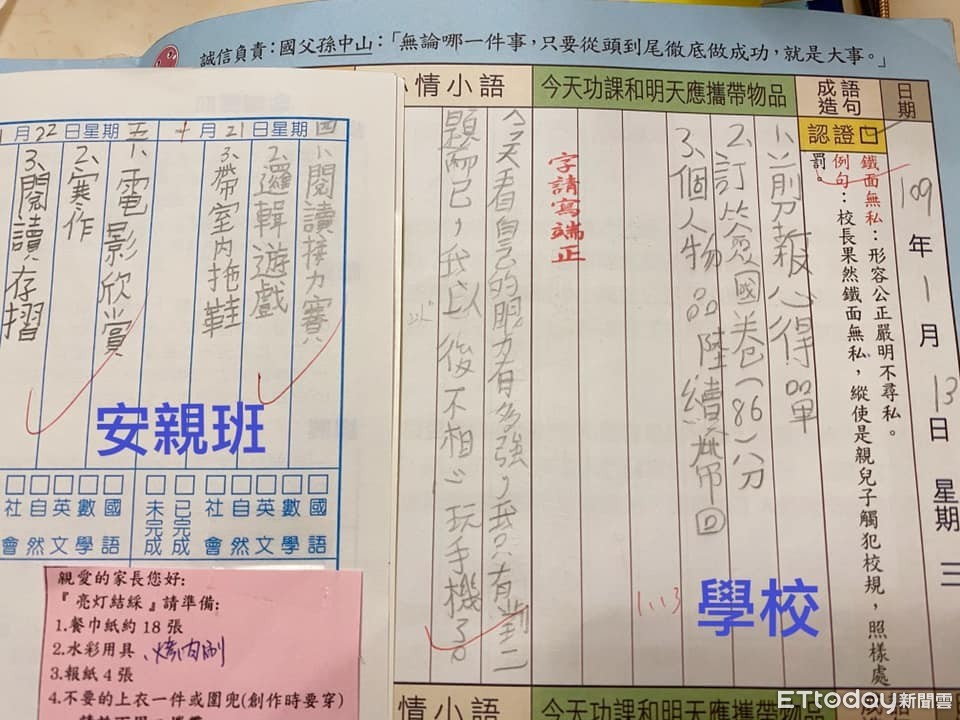 誠信負責：國父孫中山：「無論哪一件事，只要從頭到尾徹底做成功，就是大事。」
日期
109年1月13日 星期三
成語造句
認證
鐵面無私：形容公正嚴明不尋私。
例句：校長果然鐵面無私，縱使是親兒子觸犯校規，照樣處罰。
今天功課和明天應攜帶物品
1、剪報心得單
2、訂 國卷(86)八分
3、個人物品陸續帶回
1.13
字請寫端正
情小語
今天看自己的眼力有多強，我只有對二
題而已，我以後不相心玩手機了。
以
學校
十月21日星期四
1、閱讀接力賽
2、邏輯遊戲
3、帶室內拖鞋
月22日星期五
1、電影欣賞
2、寒作
3、閱讀存摺
安親班
國語
數學
英文
自然
社會
已完成
未完成
國語
數學
英文
自然
社會
親愛的家長您好:
『亮灯結綵』請準備:
1.餐巾紙約 18 張
2.水彩用具、烤肉刷
3.報紙 4 張
4.不要的上衣一件或圍兜(創作時要穿)
情小語
今天功課和明天應攜帶物品
成語
ETtoday新聞雲